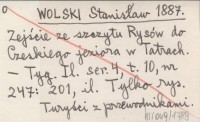 WOLSKI Stanisław 1887.
Zejście ze szczytu Rysów do
Czeskiego jeziora w Tatrach.
— Tyg. Il. ser. 4, t. 10, nr
247: 201, il. Tylko rys.
Turyści z przewodnikami.